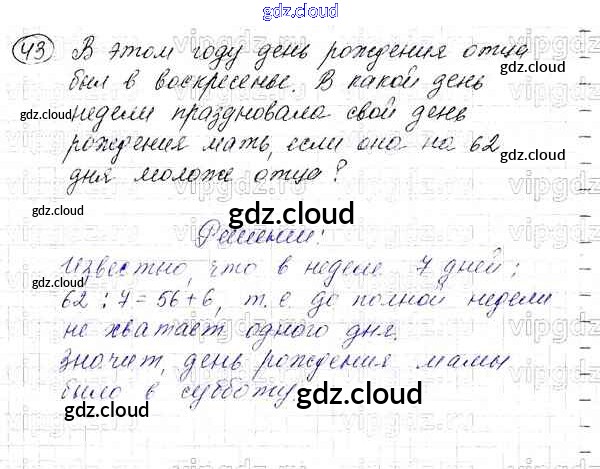 gdz.cloud
43 В этом году день рождения отца
был в воскресенье. В какой день
gdz.cloud
gdz.cloud
недели праздновала свой день
gdz.cloud
рождения мать, если она на 62
дня моложе отца?
gdz.cloud
gdz.cloud
gdz.cloud
Решение:
Известно, что в неделе 7 дней;
gdz.cloud
gdz.cloud
62 : 7 = 56 + 6, т. е. до полной недели
не хватает одного дня.
Значит, день рождения мамы
было в субботу.
gdz.cloud
gdz.cloud
gdz.cloud
gdz.cloud